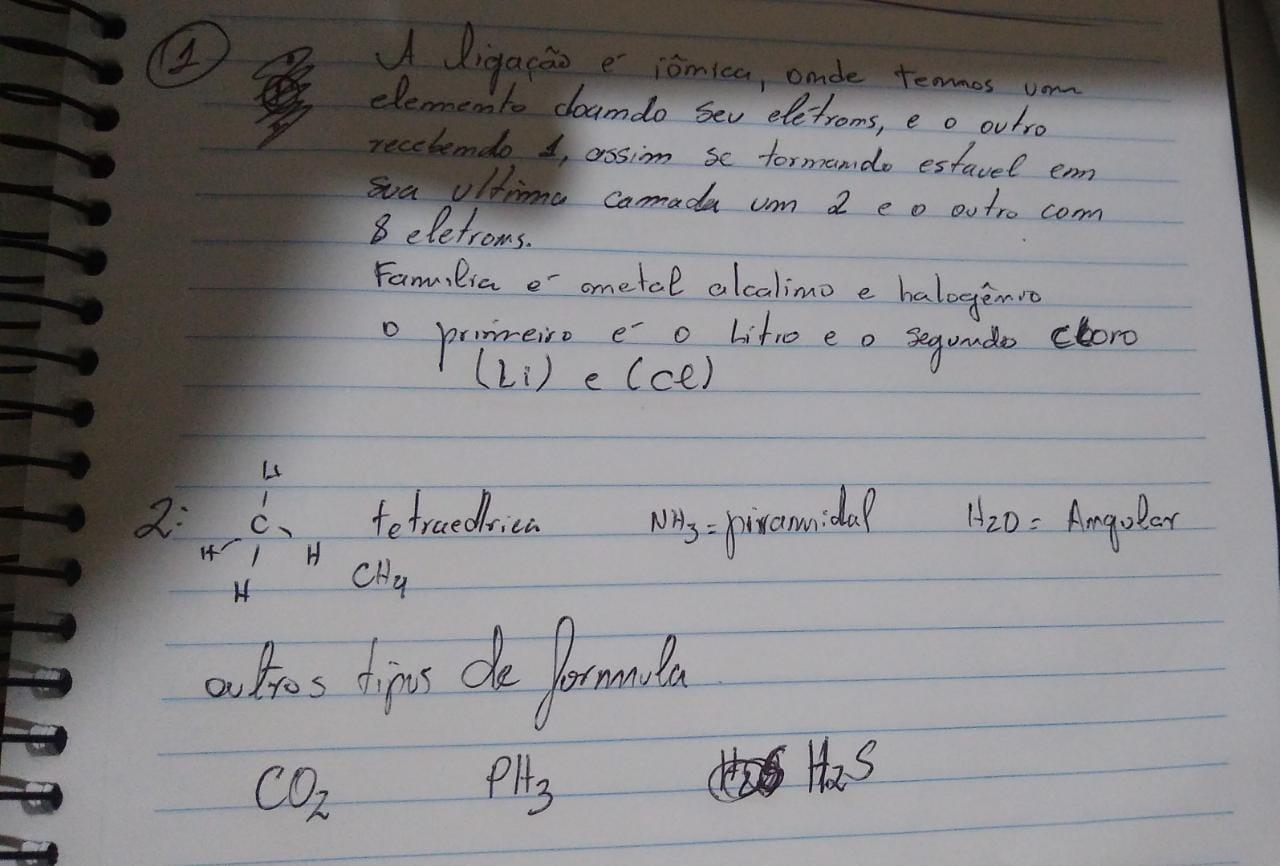 1 A ligação é iômica, onde temos um
elemento doando seu elétrons, e o outro
recebendo 1, assim se tornando estavel em
sua ultima camada um 2 e o outro com
8 eletrons.
Familia é ametal alcalino e halogênio
o primeiro é o Litio e o segundo cloro
(Li) e (Cl)
H
2: C tetraedrica NH3 = piramidal H2O = Angular
H H
H CH4
outros tipos de formula
CO2 PH3 H2S